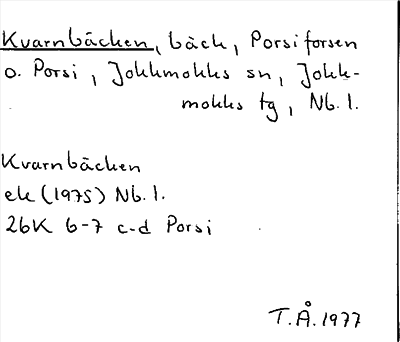 Kvarnbäcken, bäck, Porsiforsen
o. Porsi, Jokkmokks sn, Jokk-
mokks tg, Nb. l.
Kvarnbäcken
ek (1975) Nb. l.
26K 6-7 c-d Porsi
T.Å. 1977